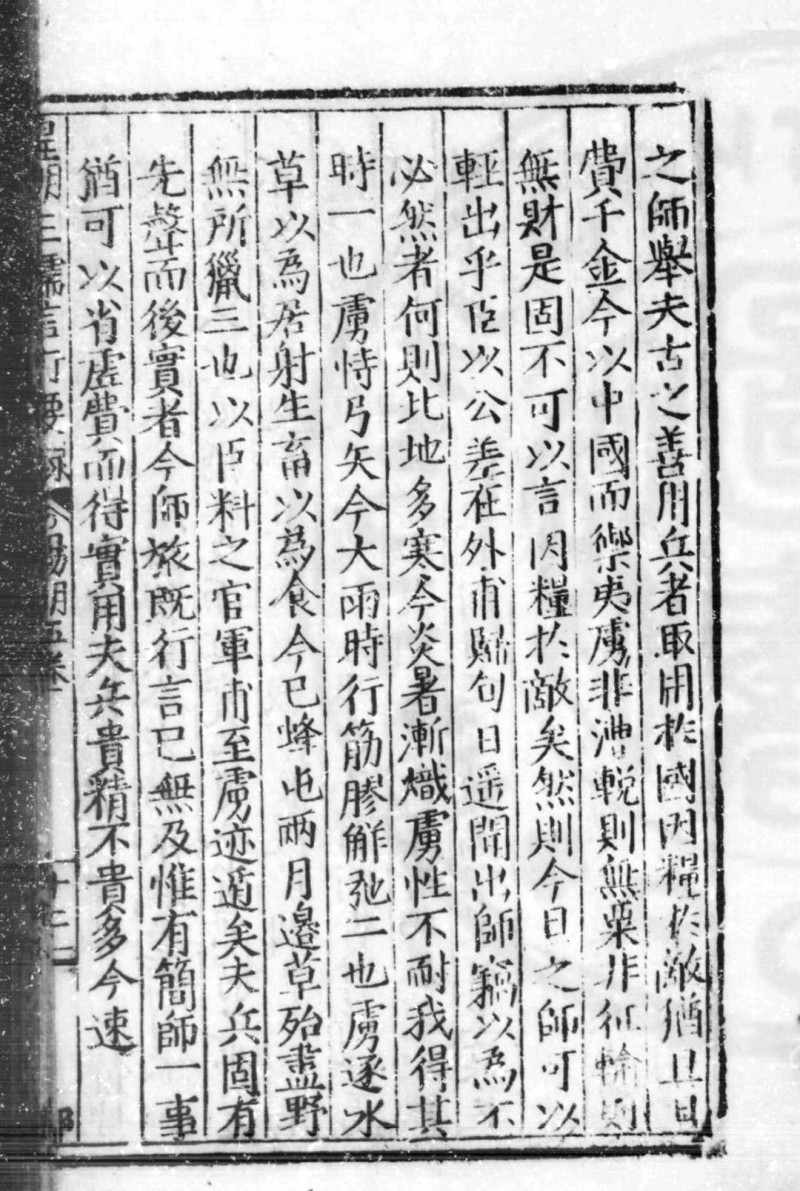 之師舉夫古之善用兵者取用於國因糧於敵猶且日
費千金今以中國而禦夷虜非漕輓則無粟非征輸則
無財是固不可以言因糧於敵矣然則今日之師可以
輕出乎臣以公差在外甫歸旬日遥聞出師竊以為不
必然者何則北地多寒今炎暑漸熾虜性不耐我得其
時一也虜恃弓矢今大雨時行筋膠解弛二也虜逐水
草以為居射生畜以為食今已蜂屯兩月邊草殆盡野
無所獵三也以臣料之官軍甫至虜迹遁矣夫兵固有
先聲而後實者今師旅既行言已無及惟有簡師一事
猶可以省虚費而得實用夫兵貴精不貴多今速
皇朝三儒言行要録 陽明五卷 十二